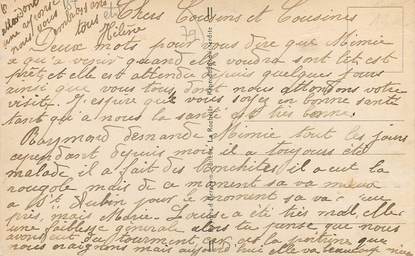 Chers Cousins et Cousines
Deux mots pour vous dire que Mimie
n'a qu'a venir quand elle voudra son lit est
prêt et elle est attendu depuis quelques jours
ainsi que vous tous dont nous attendons votre
visite. J'espère que vous soyez en bonne santé
tant qu'a nous la santé est très bonne.
Raymond demande Mimie tout les jours
cependant depuis mois il a toujours été
malade il a fait des bronchites il a eut la
rougole mais de ce moment sa va mieux
a St Aubin pour le moment sa va
près, mais Marie-Louise a été très mal, elle
une faiblesse generale alors tu pense que nous
avons eut du tourment, car la poitrine que
nous craignons mais aujourd'hui elle va beaucoup mieux
allez donc
une réponse
vous
Dembarssans
tous
Hélène